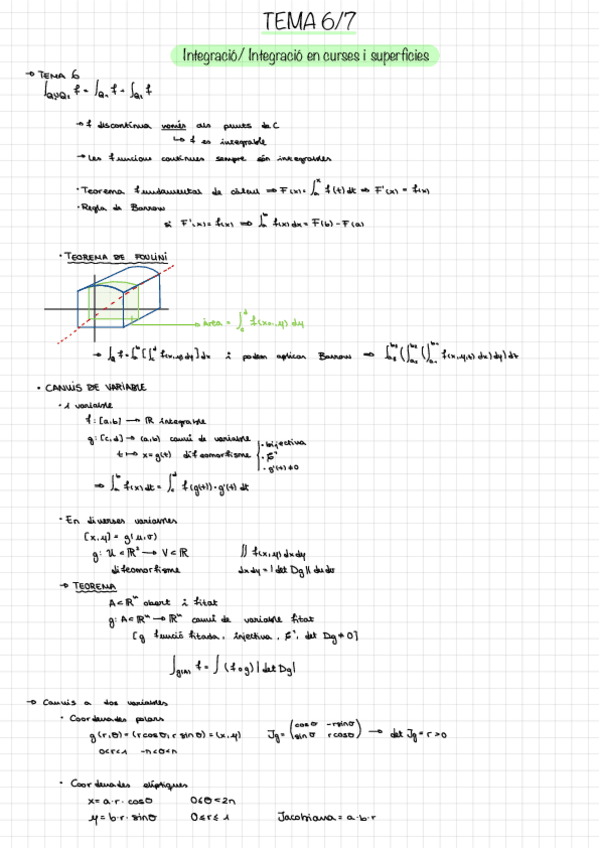 TEMA 6/7
Integració/ Integració en curses i superfícies
→ TEMA 6
∫Q∪Q₁ f = ∫Q f + ∫Q₁ f
→ f discontínua només als punts de C
↳ f es integrable
→ Les funcions contínues sempre són integrables
· Teorema fundamental de càlcul ⇒ F(x) = ∫ₐˣ f(t) dt ⇒ F'(x) = f(x)
· Regla de Barrow
si F'(x) = f(x) ⇒ ∫ₐᵇ f(x) dx = F(b) - F(a)
· TEOREMA DE FOUBINI
àrea = ∫ f(x₀, y) dy
i podem aplicar Barrow ⇒
· CANVIS DE VARIABLE
· 1 variable
f: [a,b] → ℝ integrable
g: [c,d] → (a,b) canvi de variable
t ↦ x = g(t) difeomorfisme
· bijectiva
· g'(t) ≠ 0
· En diverses variables
(x,y) = g(u,v)
g: U ⊂ ℝ² → V ⊂ ℝ
∬ f(x,y) dxdy
difeomorfisme
dxdy = |det Dg| dudv
→ TEOREMA
A ⊂ ℝⁿ obert i fitat
g: A ⊂ ℝⁿ → ℝⁿ canvi de variable fitat
[g funció fitada, injectiva, det Dg ≠ 0]
∫g(A) f = ∫ (f∘g) |det Dg|
→ Canvis a dos variables
· Coordenades polars
g(r,θ) = (r cosθ, r sinθ) = (x,y)
Jg = (cosθ -r sinθ
sinθ r cosθ) → det Jg = r > 0
· Coordenades el·líptiques
x = a·r·cosθ 0≤θ<2π
y = b·r·sinθ 0≤r≤1 Jacobiana = a·b·r